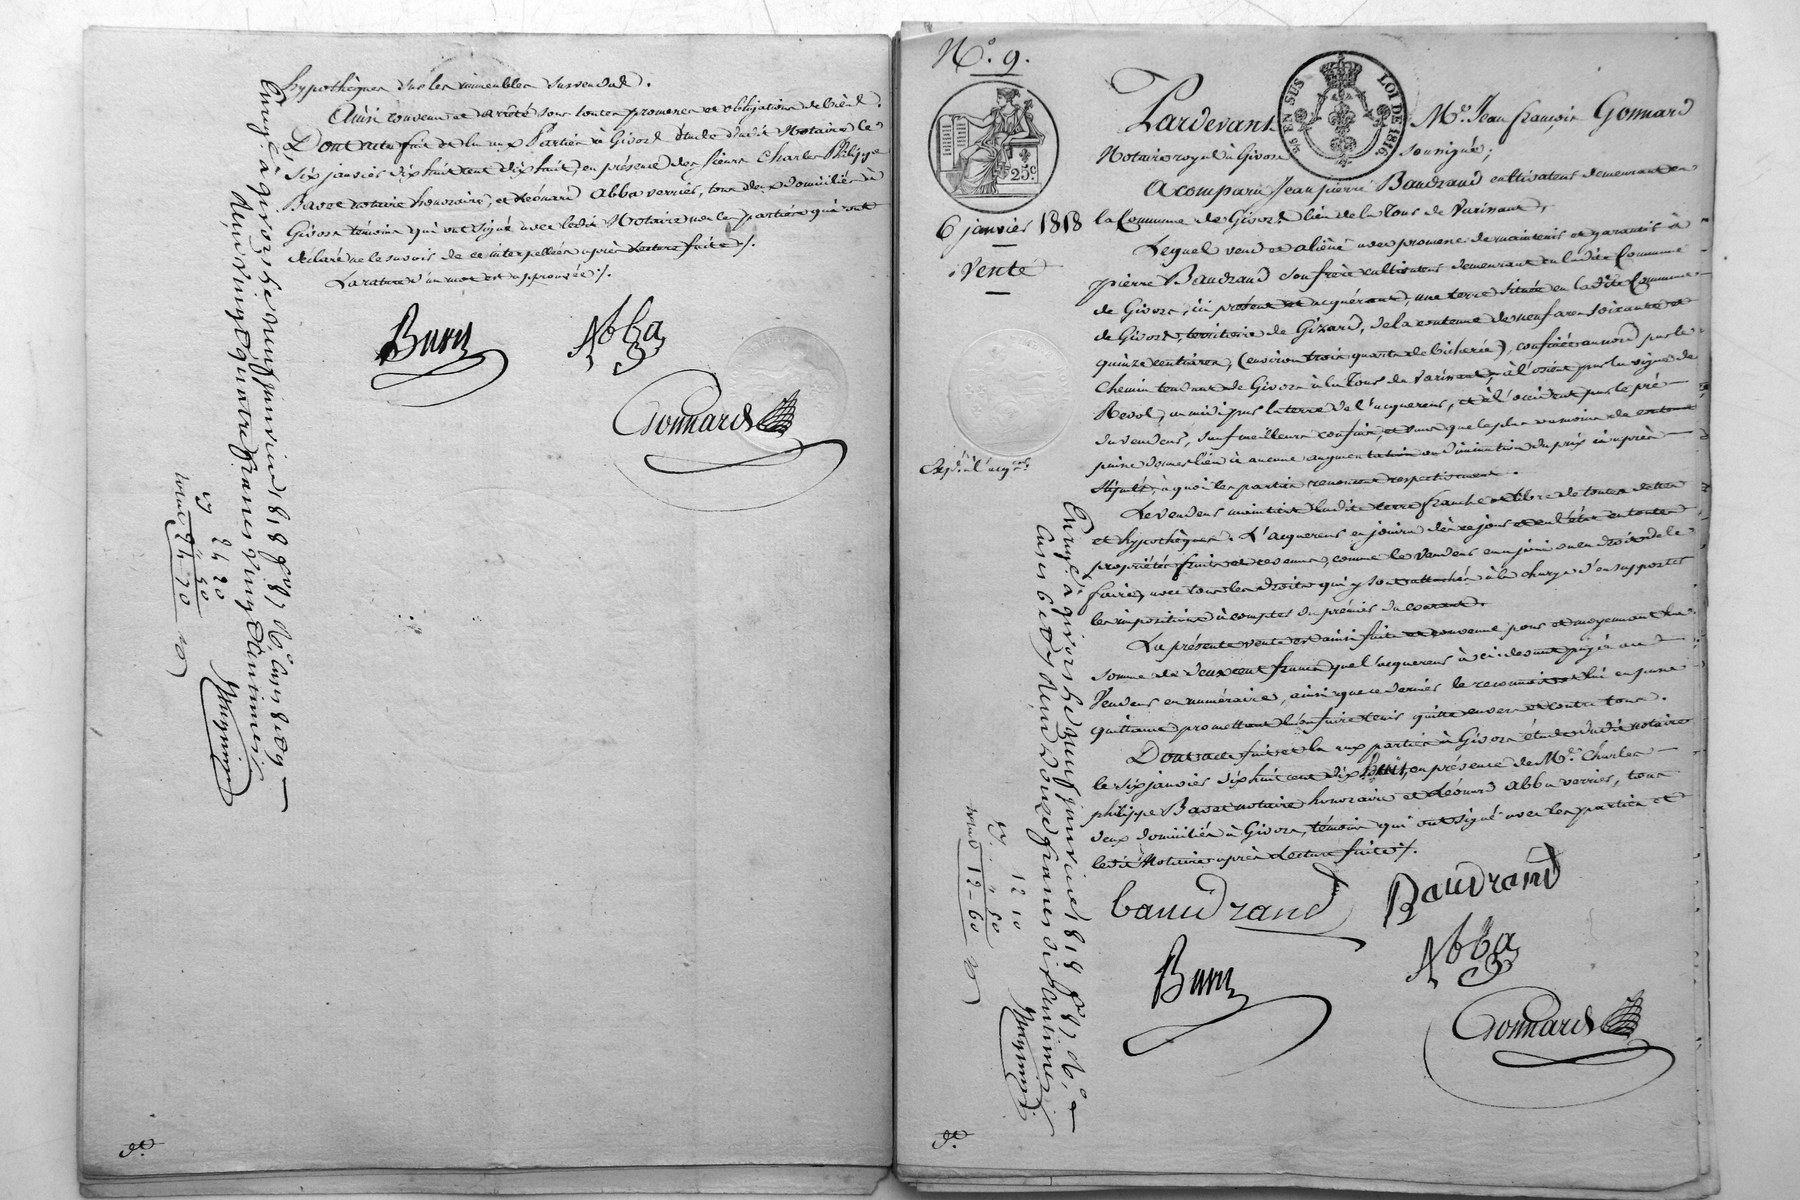 hypothèques sur les immeubles survendus.
Ainsi convenu et arrêté sous toutes promesses et obligations de biens.
Dont acte fait et lu aux Parties à Givors étude dudit Notaire le
six janvier dix huit cent dix huit, en présence des sieurs Charles Philippe
Bavet notaire honoraire, et Léonard Abba verrier, tous deux domiciliés à
Givors témoins qui ont signé avec ledit Notaire non les parties qui ont
déclaré ne le savoir de ce interpellées après lecture faite ./.
La rature d'un mot est approuvée ./.
Abba
Gonnard
Enregé à givors le neuf janvier 1818 fo 87 Vo Cases 8 et 9
Reçu vingt quatre francs vingt centimes
24 20
" 50
24 70
No. 9.
25c
6 janvier 1818
Vente
EN SUS
LOI DE 1816
Pardevant Me. Jean françois Gonnard
Notaire royal à Givors soussigné;
A comparu Jean pierre Baudrand cultivateur demeurant en
la Commune de Givors lieu de la Tour de Varissant,
Lequel vend et aliéné avec promesse de maintenir et garantir à
pierre Baudrand son frère cultivateur demeurant en ladite Commune
de Givors, ici présent et acquérant, une terre située en ladite Commune
de Givors, territoire de Gizard, de la contenue de neuf ares soixante et
quinze centiares, (environ trois quarts de bicherée), confinée au nord par le
Chemin tendant de Givors à la Tour de Varissant, à l'orient par la vigne de
Revol, au midi par la terre de l'acquereur, et à l'occident par le pré
du vendeur, sauf meilleurs confins, et sans que le plus ou moins de contenue
puisse donner lieu à aucune augmentation ou diminution du prix ci après
stipulé, à quoi les parties renoncent respectivement.
Le vendeur maintient ladite terre franche et libre de toutes dettes
et hypothèques. L'acquereur en jouira dès ce jour et en l'état en toutes
propriétés fruits et revenus, comme le vendeur en a joui ou eu droit de le
faire, avec tous les droits qui y sont attachés à la charge d'en supporter
les impositions à compter du premier du courant.
La présente vente est ainsi faite et convenue pour et moyennant la
somme de deux cent francs que l'acquereur a ci devant payée au
Vendeur en numéraire, ainsi que ce dernier le reconnoit et lui en passe
quittance promettant l'en faire tenir quitte envers et contre tous.
Dont acte fait et lu aux parties à Givors étude dudit notaire
le six janvier dix huit cent dix huit, en présence de Mr. Charles
philippe Bavet notaire honoraire et Léonard Abba verrier, tous
deux domiciliés à Givors, témoins qui ont signé avec les parties et
ledit Notaire après lecture faite ./.
baudrand
Baudrand
Abba
Gonnard
Enregé à givors le neuf janvier 1818 fo 87 Vo
Cases 6 et 7 Reçu douze francs dix centimes
12 10
" 50
12 - 60